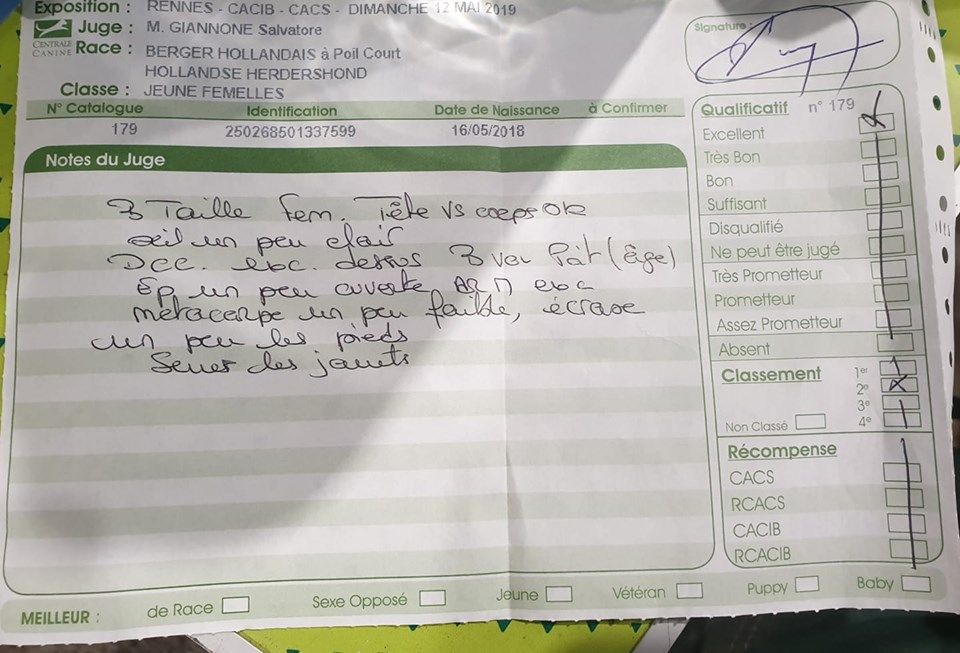 Exposition : RENNES - CACIB - CACS - DIMANCHE 12 MAI 2019
CENTRALE CANINE
Juge : M. GIANNONE Salvatore
Race : BERGER HOLLANDAIS à Poil Court
HOLLANDSE HERDERSHOND
Classe : JEUNE FEMELLES
Signature :
N° Catalogue Identification Date de Naissance à Confirmer
179 250268501337599 16/05/2018
Notes du Juge
B Taille Fem. Tête vs corps OK
œil un peu clair
Dcc. ebc. dessus B (âge)
Ep un peu ouverte AR ebc
métacarpe un peu faible, écrase
un peu les pieds
Serrer des jarrets
Qualificatif n° 179
Excellent
Très Bon
Bon
Suffisant
Disqualifié
Ne peut être jugé
Très Prometteur
Prometteur
Assez Prometteur
Absent
Classement 1er
2e
3e
Non Classé 4e
Récompense
CACS
RCACS
CACIB
RCACIB
MEILLEUR : de Race Sexe Opposé Jeune Vétéran Puppy Baby